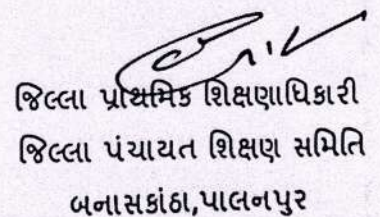 જિલ્લા પ્રાથમિક શિક્ષણાધિકારી
જિલ્લા પંચાયત શિક્ષણ સમિતિ
બનાસકાંઠા,પાલનપુર